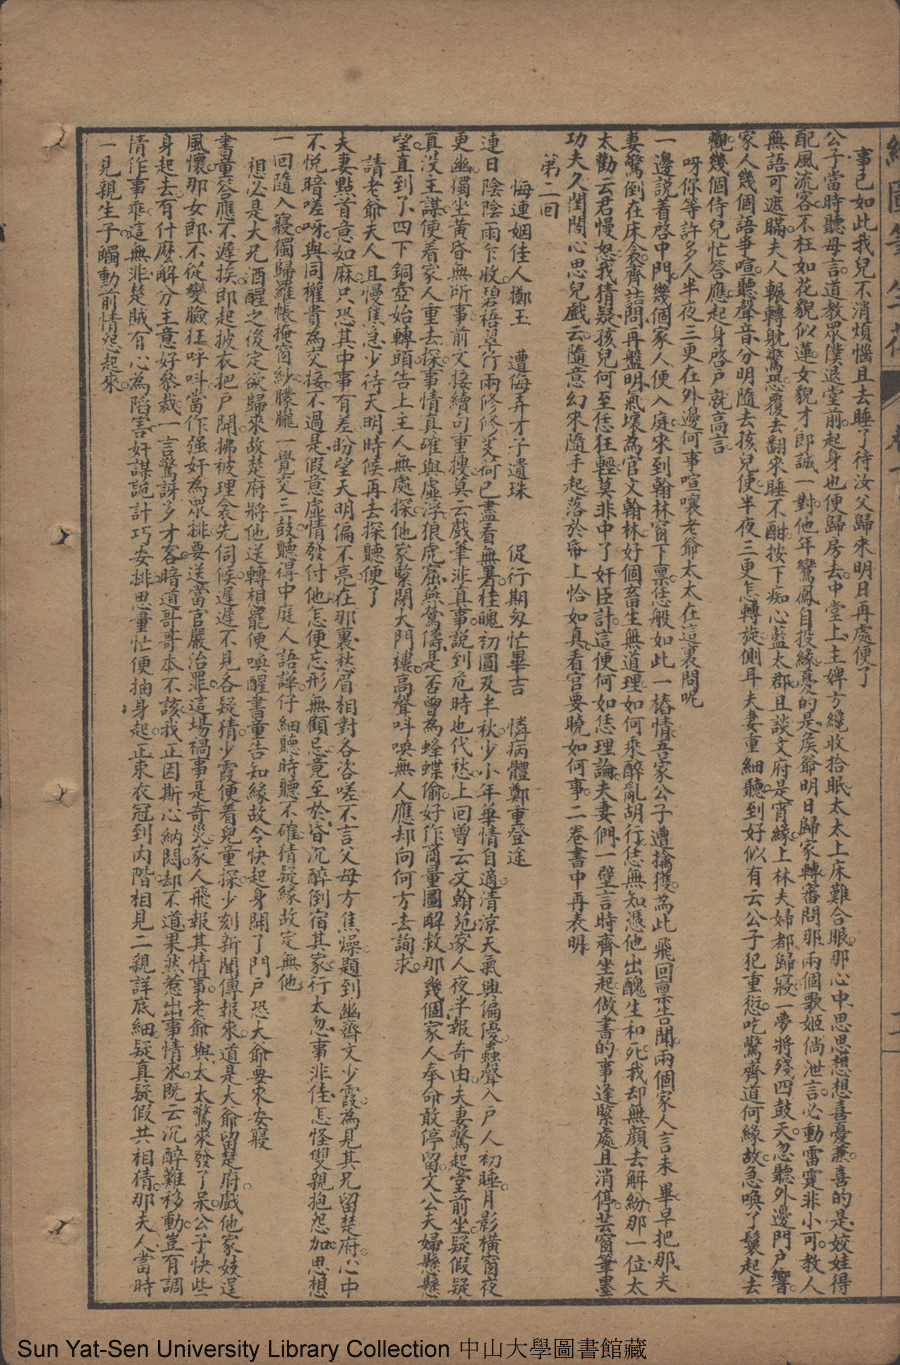 事已如此我兒不消煩惱且去睡了待汝父歸來明日再處便了
公子當時聽母言道教眾僕退堂前起身也便歸房去中堂上主婢方纔收拾眠太太上床難合眼那心中思思想想喜憂兼喜的是姣娃得
配風流客不枉如花貌似蓮女貌才郎誠一對他年鸞鳳自投緣憂的是侯爺明日歸家轉審問那兩個歌姬倘泄言必動雷霆非小可教人
無語可遮瞞夫人輾轉躭驚恐覆去翻來睡不酣按下痴心藍太郡且談文府是宵緣上林夫婦都歸寢一夢將殘四鼓天忽聽外邊門戶響
家人幾個語爭喧聽聲音分明隨去孩兒使半夜三更怎轉旋側耳夫妻重細聽到好似有云公子犯重愆吃驚齊道何緣故急喚了鬟起去
觀幾個侍兒忙答應起身啓戶就高言
呀你等許多人半夜三更在外邊何事喧嚷老爺太太在這裏問呢
一邊說着啓中門幾個家人便入庭來到翰林窗下禀恁般如此一樁情吾家公子遭擒獲為此飛回禀告聞兩個家人言未畢早把那夫
妻驚倒在床衾齊詰問再盤明氣壞為官文翰林好個畜生無道理如何乘醉亂胡行恁無知憑他出醜生和死我却無顏去解紛那一位太
太勸云君慢怒我猜疑孩兒何至恁狂輕莫非中了奸臣計這便何如恁理論夫妻們一壁言時齊坐起做書的事逢緊處且消停芸窗筆墨
功夫久閨閣心思兒戲云隨意幻來隨手起落於帋上恰如真看官要曉如何事二卷書中再表明
第二回
悔連姻佳人擲玉　遭侮弄才子遺珠　促行期匆忙畢吉　憐病體鄭重登途
連日陰陰雨乍收碧梧翠竹兩修修炎荷已盡看無暑桂魄初圓及半秋少小年華情自適清凉天氣興偏優蟲聲入戶人初睡月影橫窗夜
更幽獨坐黃昏無所事前文接續句重摟莫云戲筆非真事說到危時也代愁上回曾云文翰苑家人夜半報奇由夫妻驚起堂前坐疑假疑
真沒主謀便着家人重去探事情真確與虛浮狼虎窟燕鶯儔是否曾為蜂蝶偷好作商量圖解救那幾個家人奉命敢停留文公夫婦懸懸
望直到了四下銅壺始轉頭告上主人無處探他家緊閉大門樓高聲叫喚無人應却向何方去詢求
請老爺夫人且慢焦急少待天明時候再去探聽便了
夫妻點首意如麻只恐其中事有差盼望天明偏不亮在那裏愁眉相對各咨嗟不言父母方焦燥題到幽齋文少霞為見其兄留楚府心中
不悅暗嗟呀與同權貴為交接不過是假意虛情發付他怎便忘形無顧忌竟至於昏沉醉倒宿其家行太忽事非佳怎怪雙親抱怨加思想
一回隨入寢獨歸羅帳掩窗紗朦朧一覺交三鼓聽得中庭人語譁仔細聽時聽不確猜疑緣故定無他
想必是大兄酒醒之後定欲歸來故楚府將他送轉相罷便喚醒書童告知緣故令快起身開了門戶恐大爺要來安寢
書童答應不遲挨即起披衣把戶開拂被理衾先伺候遲遲不見各疑猜少霞便看兒童探少刻新聞傳報來道是大爺留楚府戲他家妓逞
風懷那女郎不從變臉狂呼叫當作强奸為眾排要送當官嚴治罪這場禍事是奇災家人飛報其情事老爺與太太驚來發了呆公子快些
身起去有什麼解分主意好參裁一言驚訝多才客暗道哥哥本不該我正因斯心納悶却不道果然惹出事情來既云沉醉難移動豈有調
情作事乖這無非楚賊有心為陷害奸謀詭計巧安排思量忙便抽身起正束衣冠到內階相見二親詳底細疑真疑假共相猜那夫人當時
一見親生子觸動前情怨起來